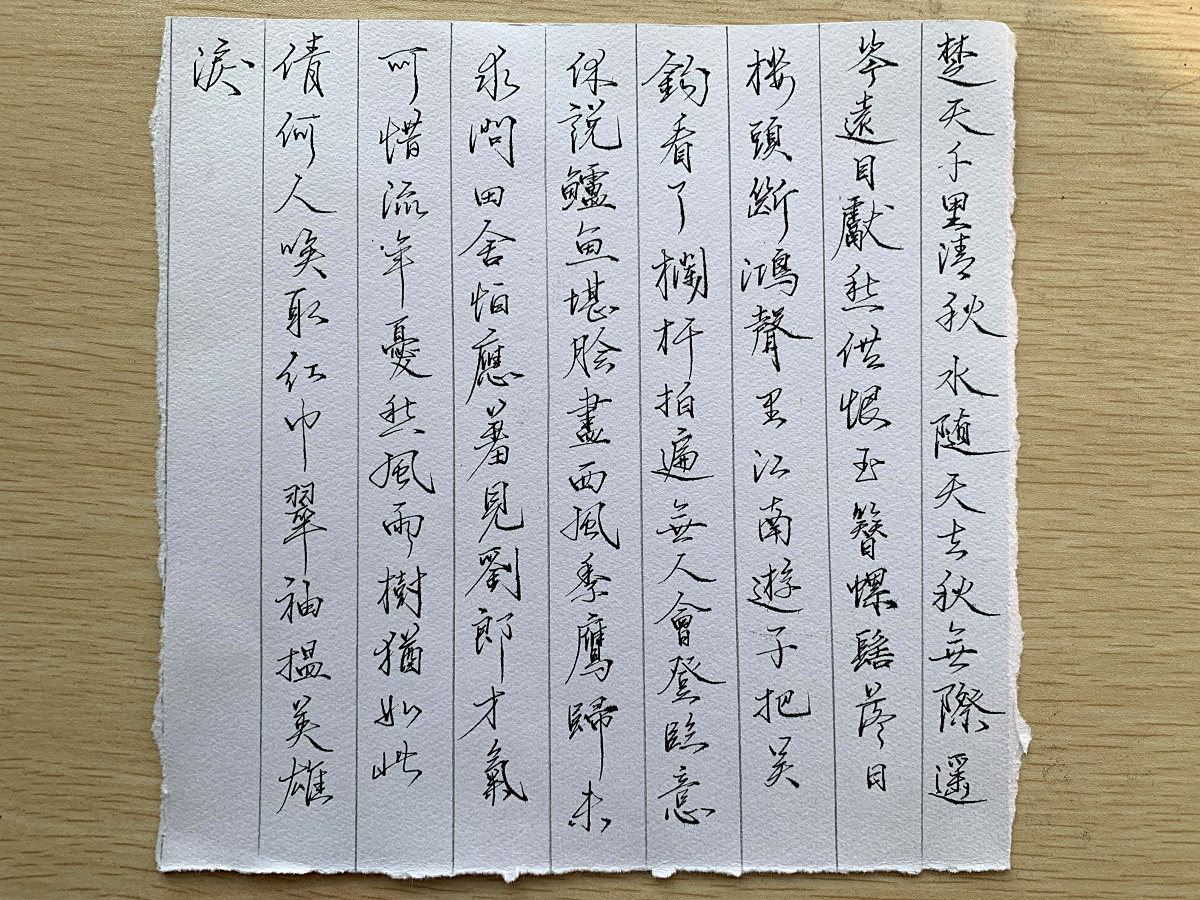 楚天千里清秋水随天去秋無際遥
岑遠目獻愁供恨玉簪螺髻落日
楼頭斷鴻聲里江南遊子把吴
鈎看了欄杆拍遍無人會登臨意
休說鱸魚堪脍盡西風季鷹歸未
求問田舍怕應羞見劉郎才氣
可惜流年憂愁風雨樹猶如此
倩何人唤取红巾翠袖揾英雄
淚